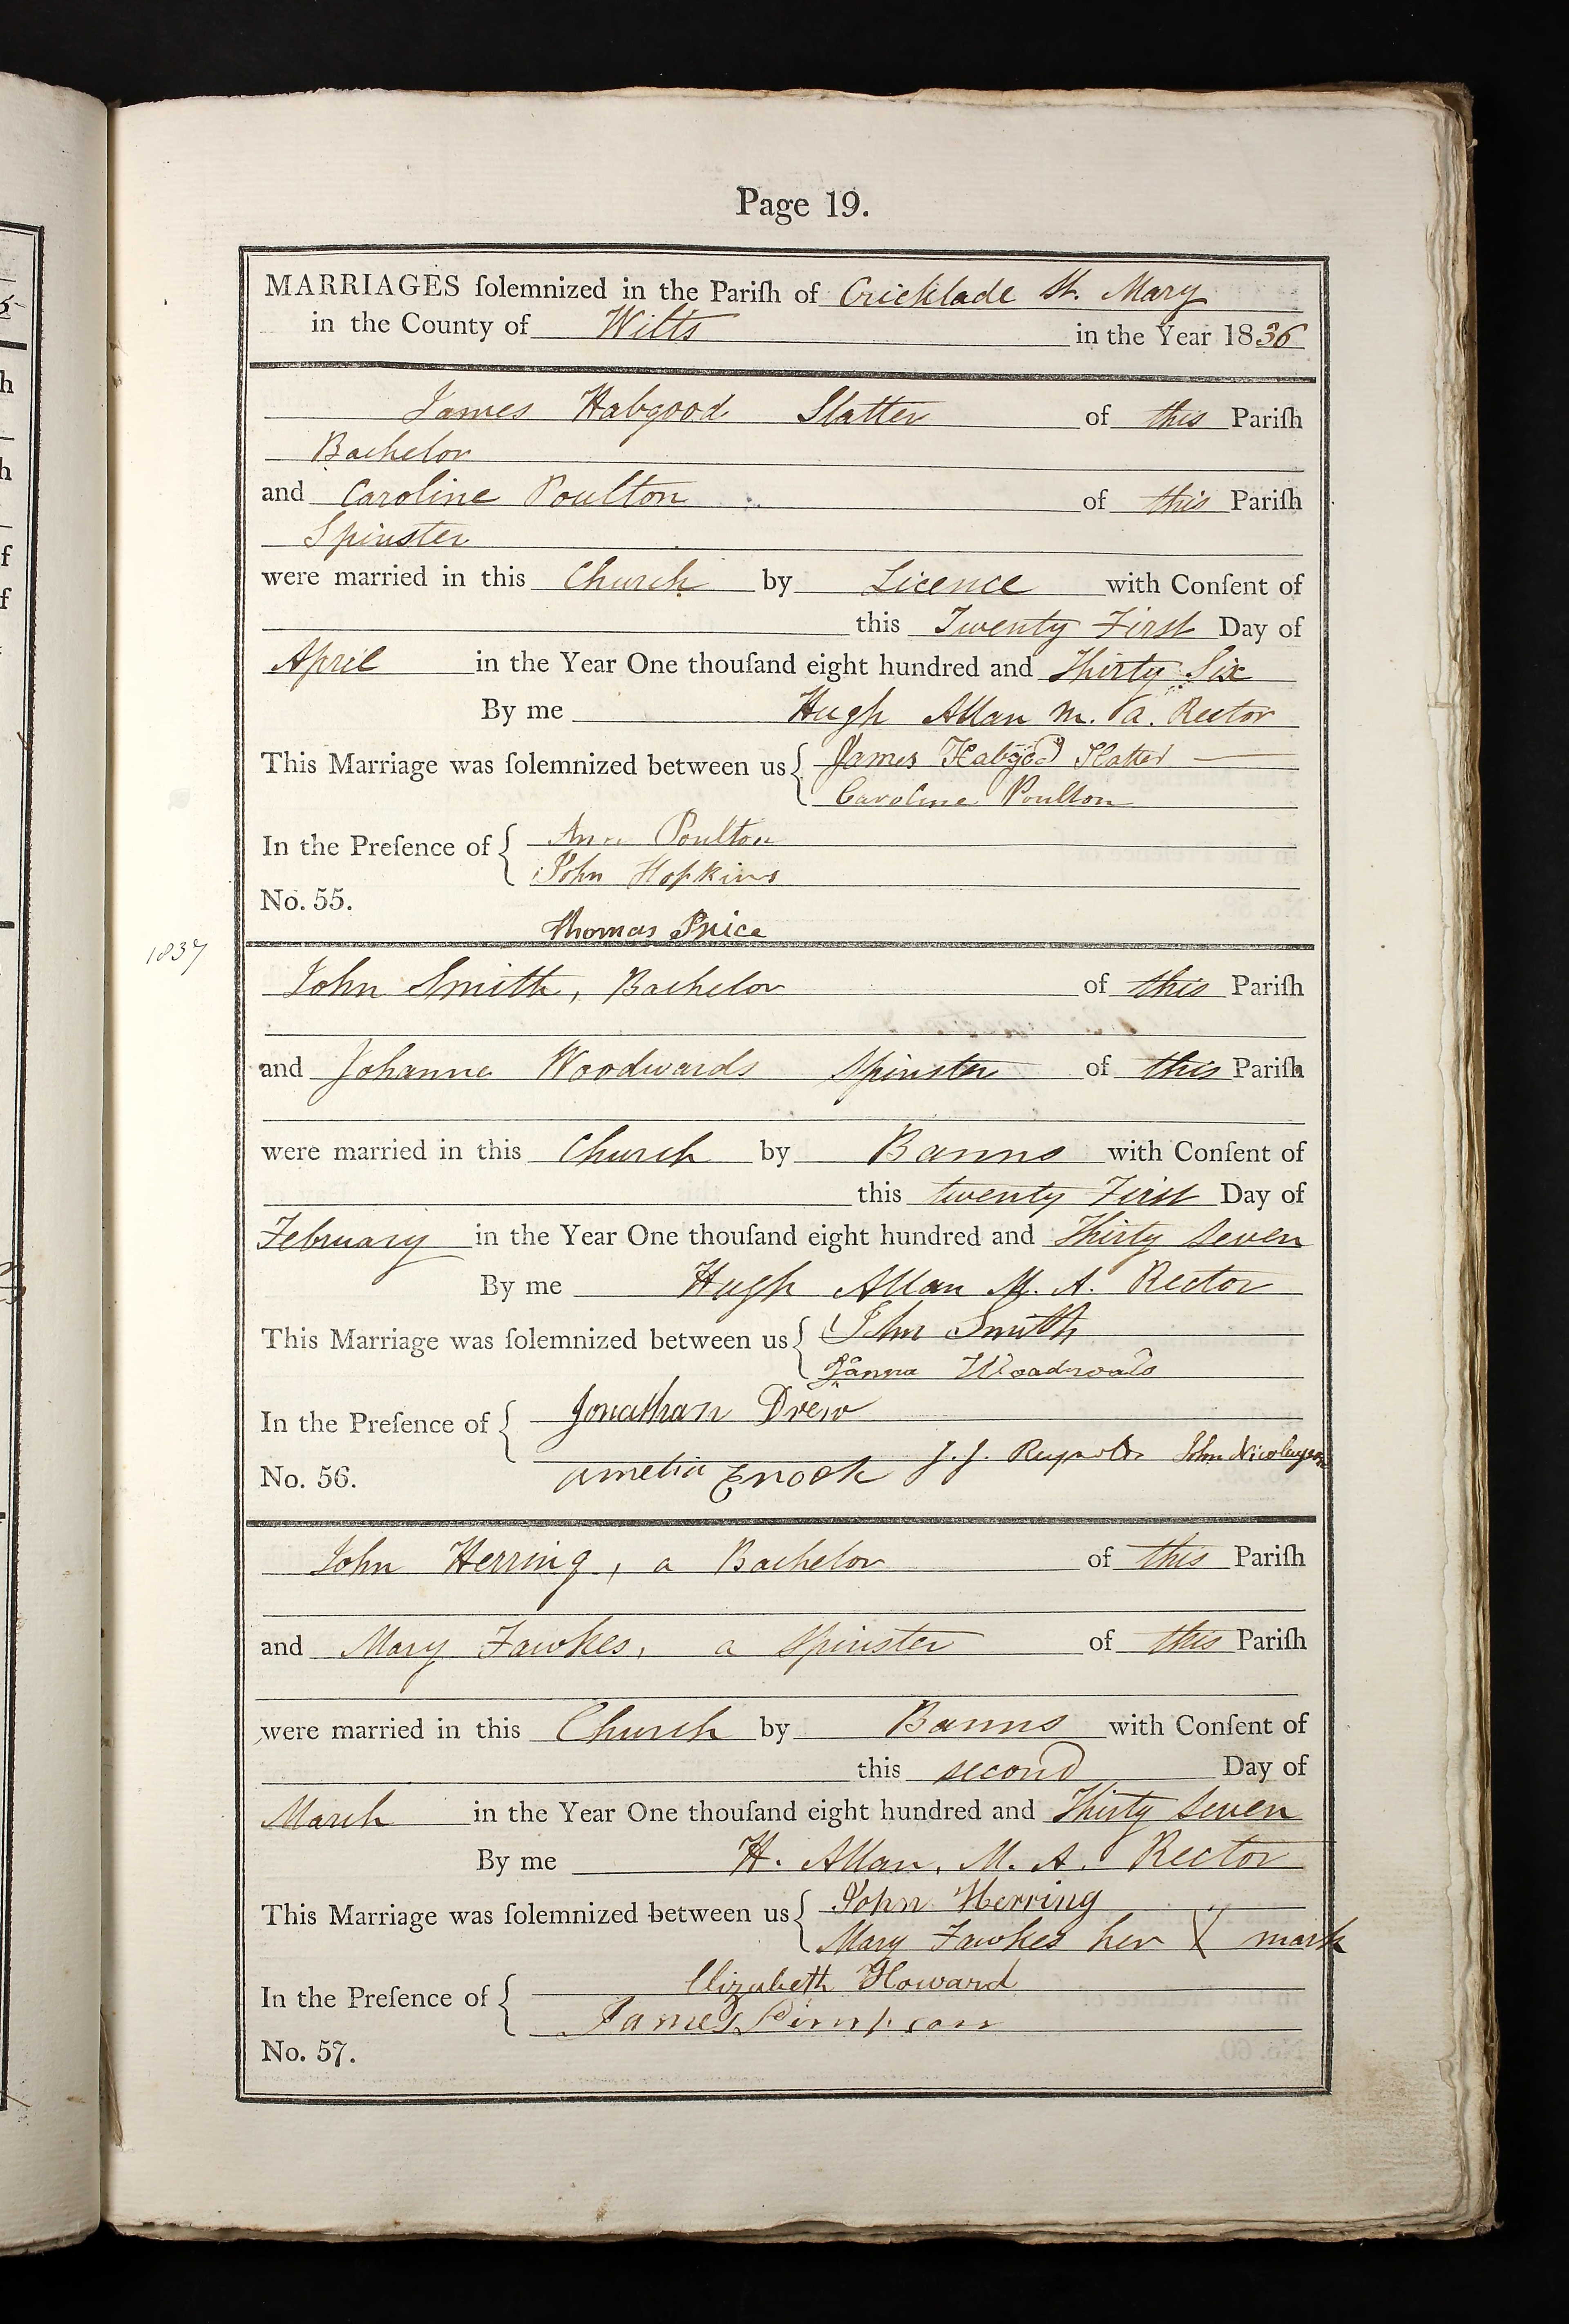 Page 19.
MARRIAGES ſolemnized in the Pariſh of Cricklade St. Mary
in the County of Wilts in the Year 1836
James Habgood Slatter of this Pariſh
Bachelor
and Caroline Poulton of this Pariſh
Spinster
were married in this Church by Licence with Conſent of
this Twenty First Day of
April in the Year One thouſand eight hundred and Thirty Six
By me Hugh Allan M. A. Rector
This Marriage was ſolemnized between us James Habgood Slatter
Caroline Poulton
In the Preſence of Ann Poulton
John Hopkins
No. 55.
Thomas Price
1837
John Smith, Bachelor of this Pariſh
and Johanna Woodwards Spinster of this Pariſh
were married in this Church by Banns with Conſent of
this twenty First Day of
February in the Year One thouſand eight hundred and Thirty Seven
By me Hugh Allan M. A. Rector
This Marriage was ſolemnized between us John Smith
Woodwards
In the Preſence of Jonathan Drew
No. 56. Amelia Enock J. J. Reynolds John
John Herring, a Bachelor of this Pariſh
and Mary Fawkes, a Spinster of this Pariſh
were married in this Church by Banns with Conſent of
this second Day of
March in the Year One thouſand eight hundred and Thirty Seven
By me H. Allan, M. A. Rector
This Marriage was ſolemnized between us John Herring
Mary Fawkes her X mark
In the Preſence of Elizabeth Howard
James
No. 57.